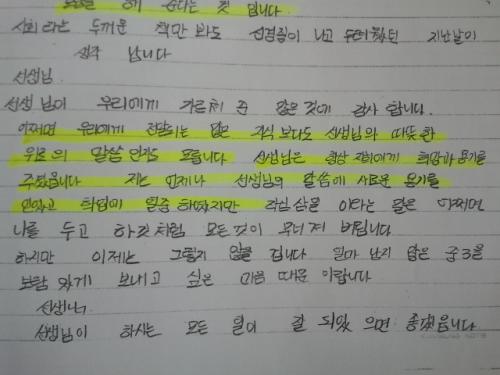 해 준다는 것 입니다
사회 라는 두꺼운 책만 봐도 신경질이 나고 두려웠던 지난날이
생각 납니다
선생님
선생 님이 우리에게 가르쳐 준 많은 것에 감사 합니다.
어쩌면 우리에게 전달되는 많은 지식 보다도 선생님의 따뜻한
위로의 말씀 인지도 모릅니다 선생님은 항상 저희에게 희망과 용기를
주셨습니다 저는 언제나 선생님의 말씀에 새로운 용기를
얻었고 학업에 열중 하였지만 작심삼일 이라는 말은 어쩌면
나를 두고 한것처럼 모든것이 무너져 버립니다.
하지만 이제는 그렇지 않을 겁니다 얼마 남지 않은 중3을
보람 있게 보내고 싶은 마음 때문 이랍니다
선생님
선생님이 하시는 모든 일이 잘 되었 으면 좋겠습니다